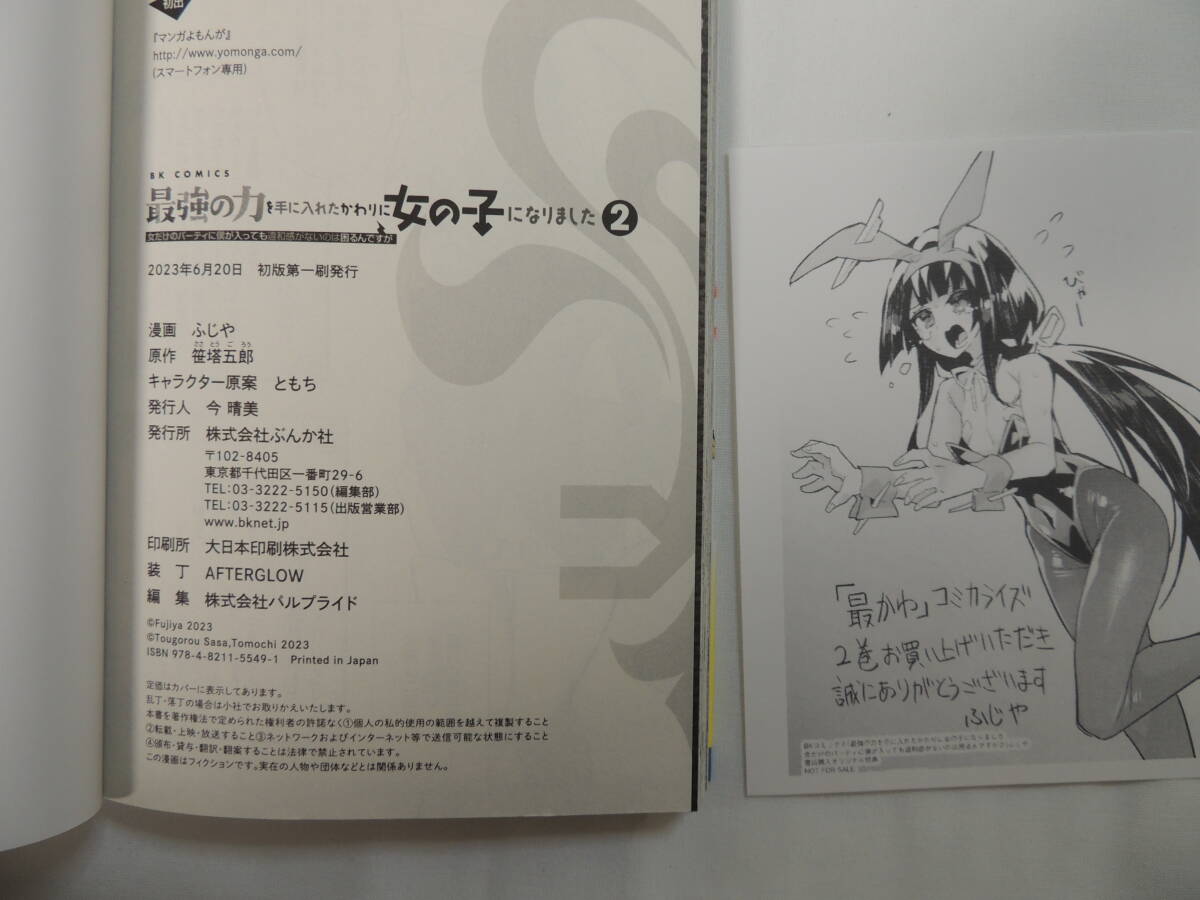 初出
『マンガよもんが』
http://www.yomonga.com/
(スマートフォン専用)
BK COMICS
最強の力を手に入れたかわりに女の子になりました2
女だけのパーティに僕が入っても違和感がないのは困るんですが
2023年6月20日 初版第一刷発行
漫画 ふじや
ささとうごろう
原作 笹塔五郎
キャラクター原案 ともち
発行人 今 晴美
発行所 株式会社ぶんか社
〒102-8405
東京都千代田区一番町29-6
TEL:03-3222-5150(編集部)
TEL:03-3222-5115(出版営業部)
www.bknet.jp
印刷所 大日本印刷株式会社
装丁 AFTERGLOW
編集 株式会社パルプライド
©Fujiya 2023
©Tougorou Sasa,Tomochi 2023
ISBN 978-4-8211-5549-1 Printed in Japan
定価はカバーに表示してあります。
乱丁・落丁の場合は小社でお取りかえいたします。
本書を著作権法で定められた権利者の許諾なく①個人の私的使用の範囲を越えて複製すること
②転載・上映・放送すること③ネットワークおよびインターネット等で送信可能な状態にすること
④頒布・貸与・翻訳・翻案することは法律で禁止されています。
この漫画はフィクションです。実在の人物や団体などとは関係ありません。
びゃー
「最かわ」コミカライズ
2巻お買い上げいただき
誠にありがとうございます
ふじや
BKコミックス「最強の力を手に入れたかわりに女の子になりました
女だけのパーティに僕が入っても違和感がないのは困るんですが
書店購入オリジナル特典
NOT FOR SALE